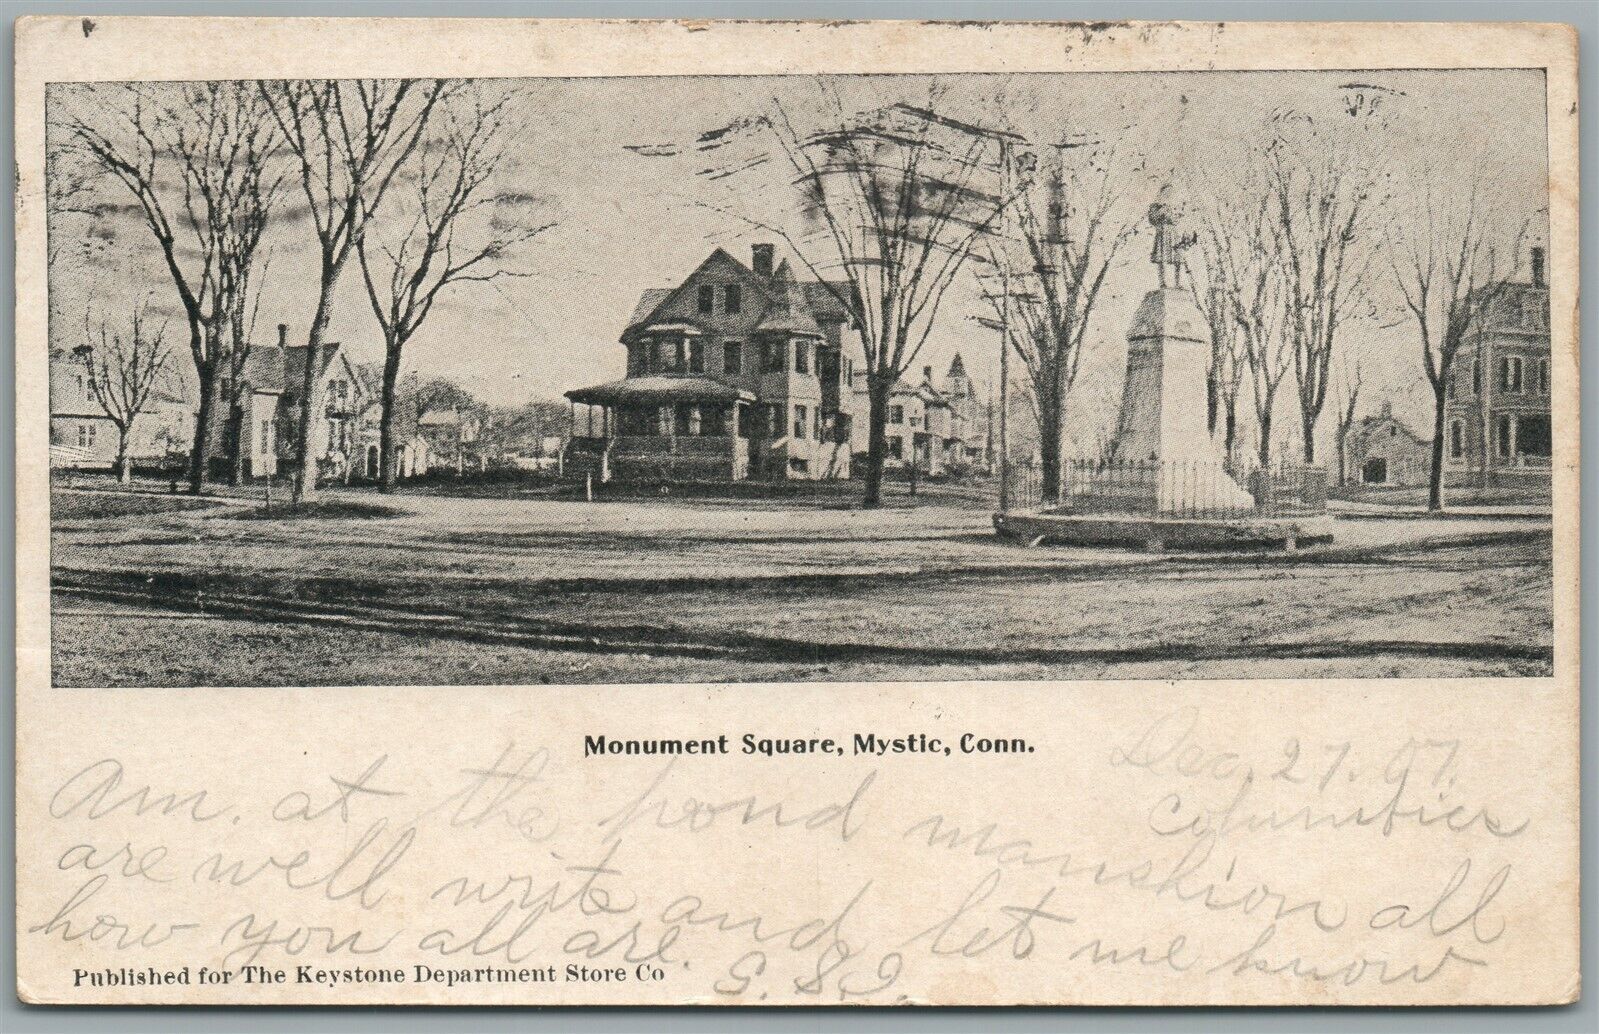 Monument Square, Mystic, Conn.
Dec. 27. 07.
Columbier
Am. at the pond manshion all
are well write and let me know
how you all are.
Published for The Keystone Department Store Co